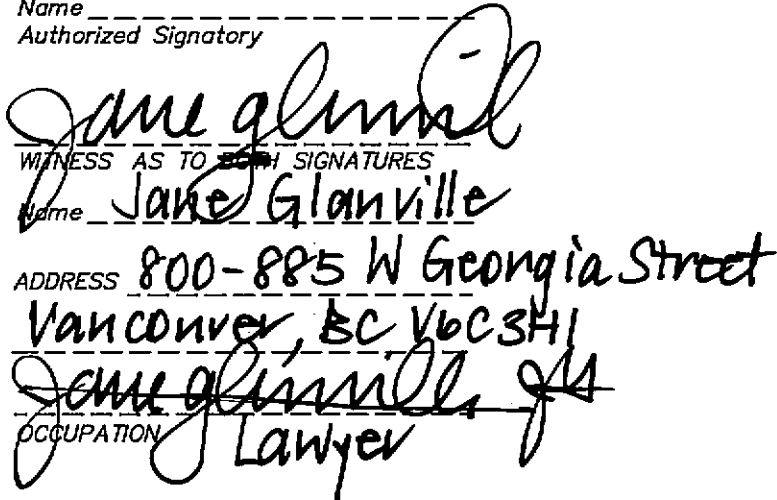 Name
Authorized Signatory
Jane Glanvill
WITNESS AS TO BOTH SIGNATURES
Name Jane Glanville
ADDRESS 800-885 W Georgia Street
Vancouver, BC V6C3H1
Jane Glanville JG
OCCUPATION Lawyer